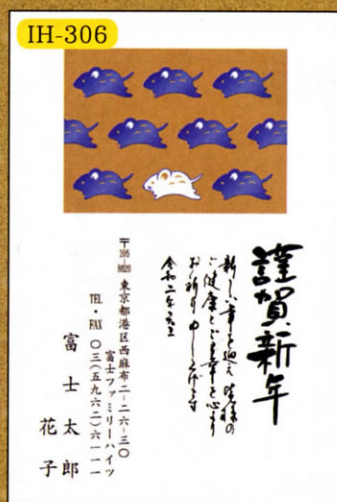 IH-306
謹賀新年
新しい年を迎え皆様の
ご健康とご多幸を心より
お祈り申し上げます
令和二年元旦
〒106-8620 東京都港区西麻布二-二六-三〇
富士ファミリーハイツ
TEL・FAX 〇三(五九六二)六一一一
富士太郎
花子